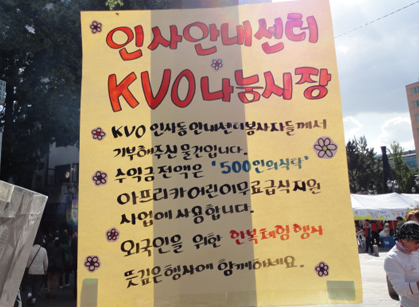 인사안내센터
KVO 나눔시장
KVO 인사동안내센터봉사자들께서
기부해주신 물건입니다.
수익금 전액은 "500인의식탁"
아프리카어린이무료급식지원
사업에 사용합니다.
외국인을 위한 한복체험행사
뜻깊은행사에 함께하세요.